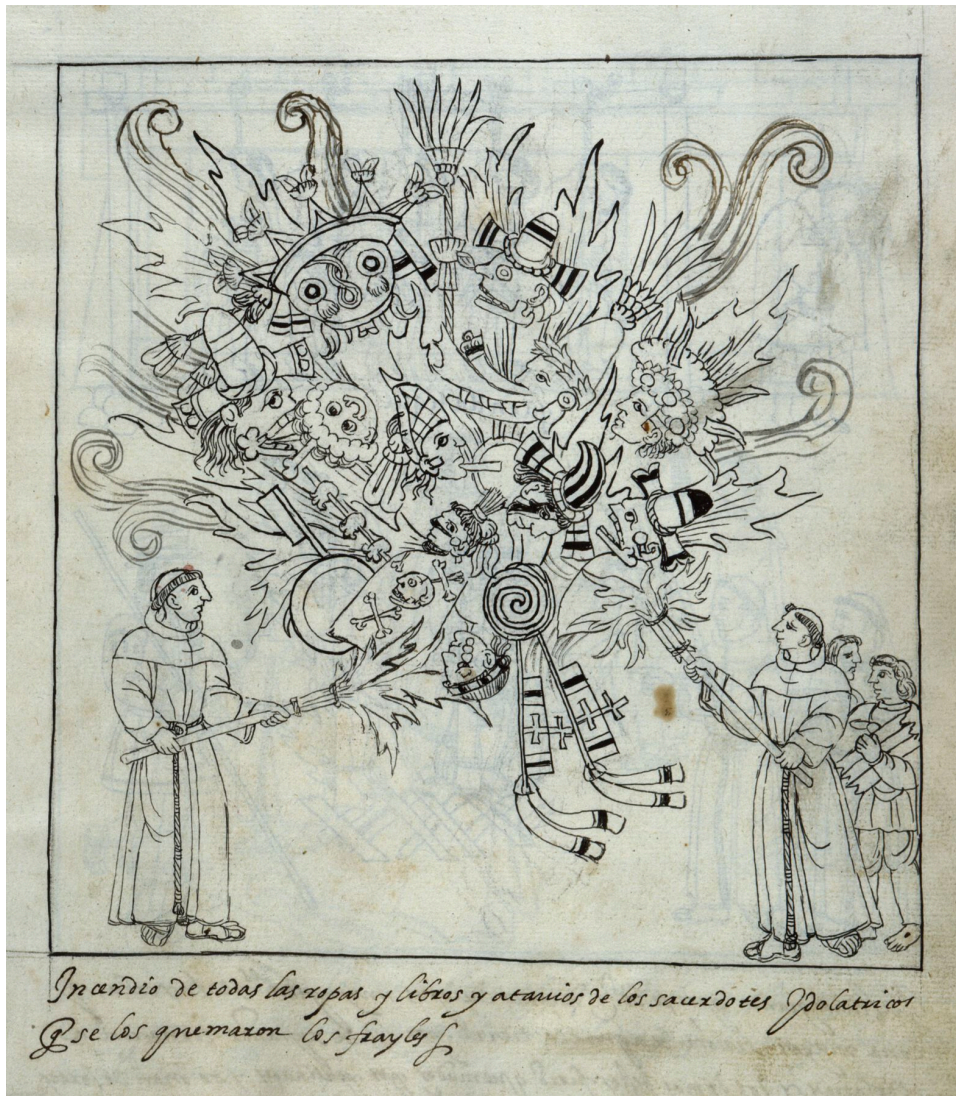 Incendio de todas las ropas y libros y atauios de los sacerdotes Ydolatricos
q̃ se los quemaron los frayles